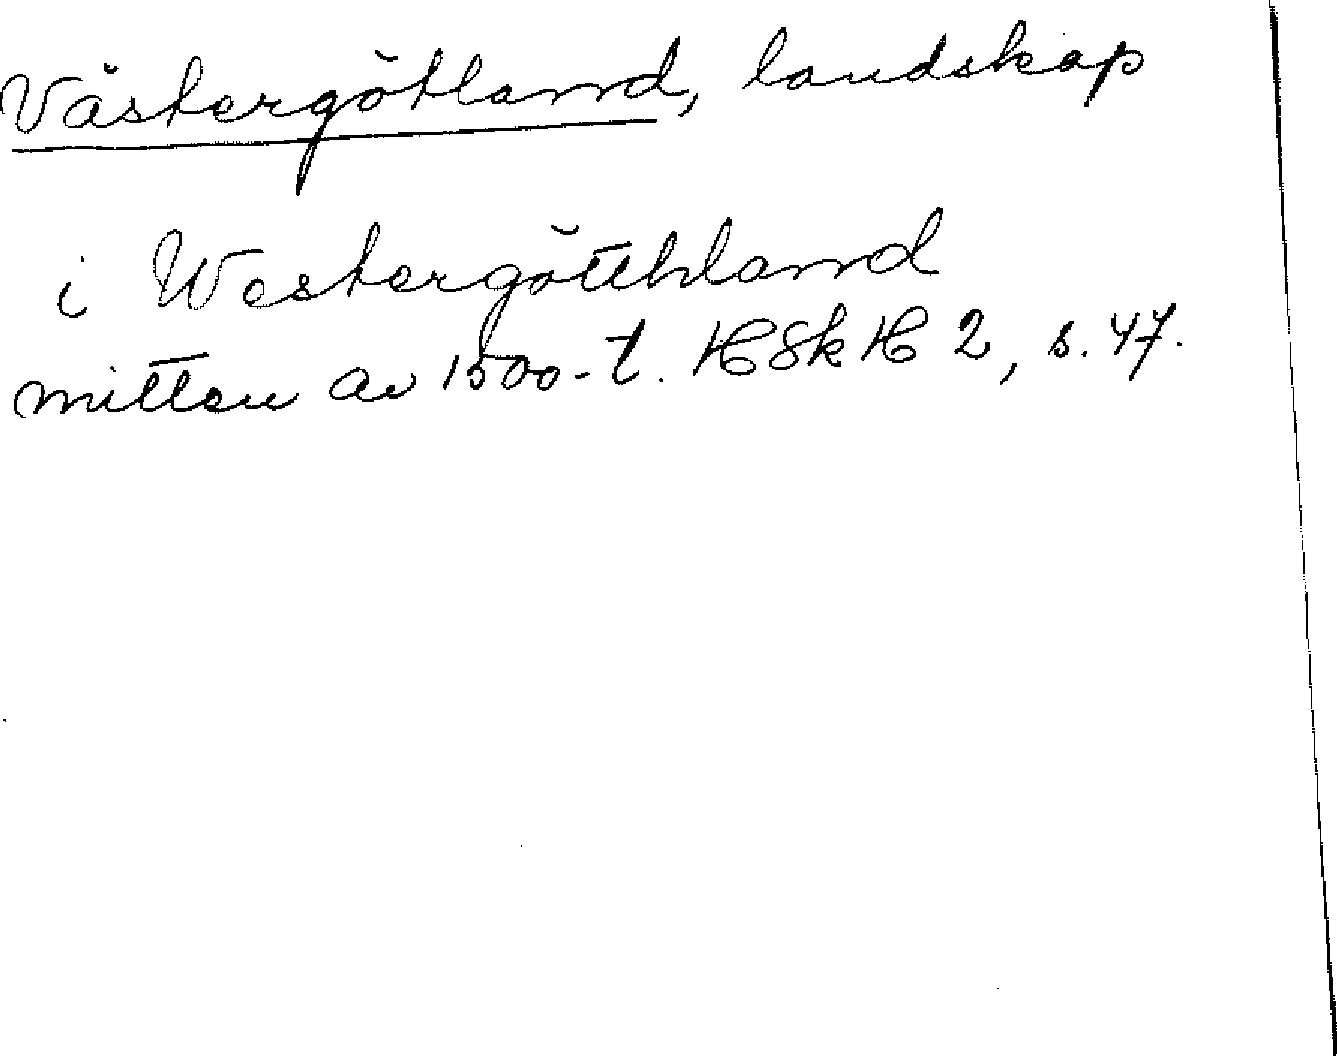 Västergötland, landskap
i Westergötthland
mitten av 1500-t. HSkH 2, s. 47.